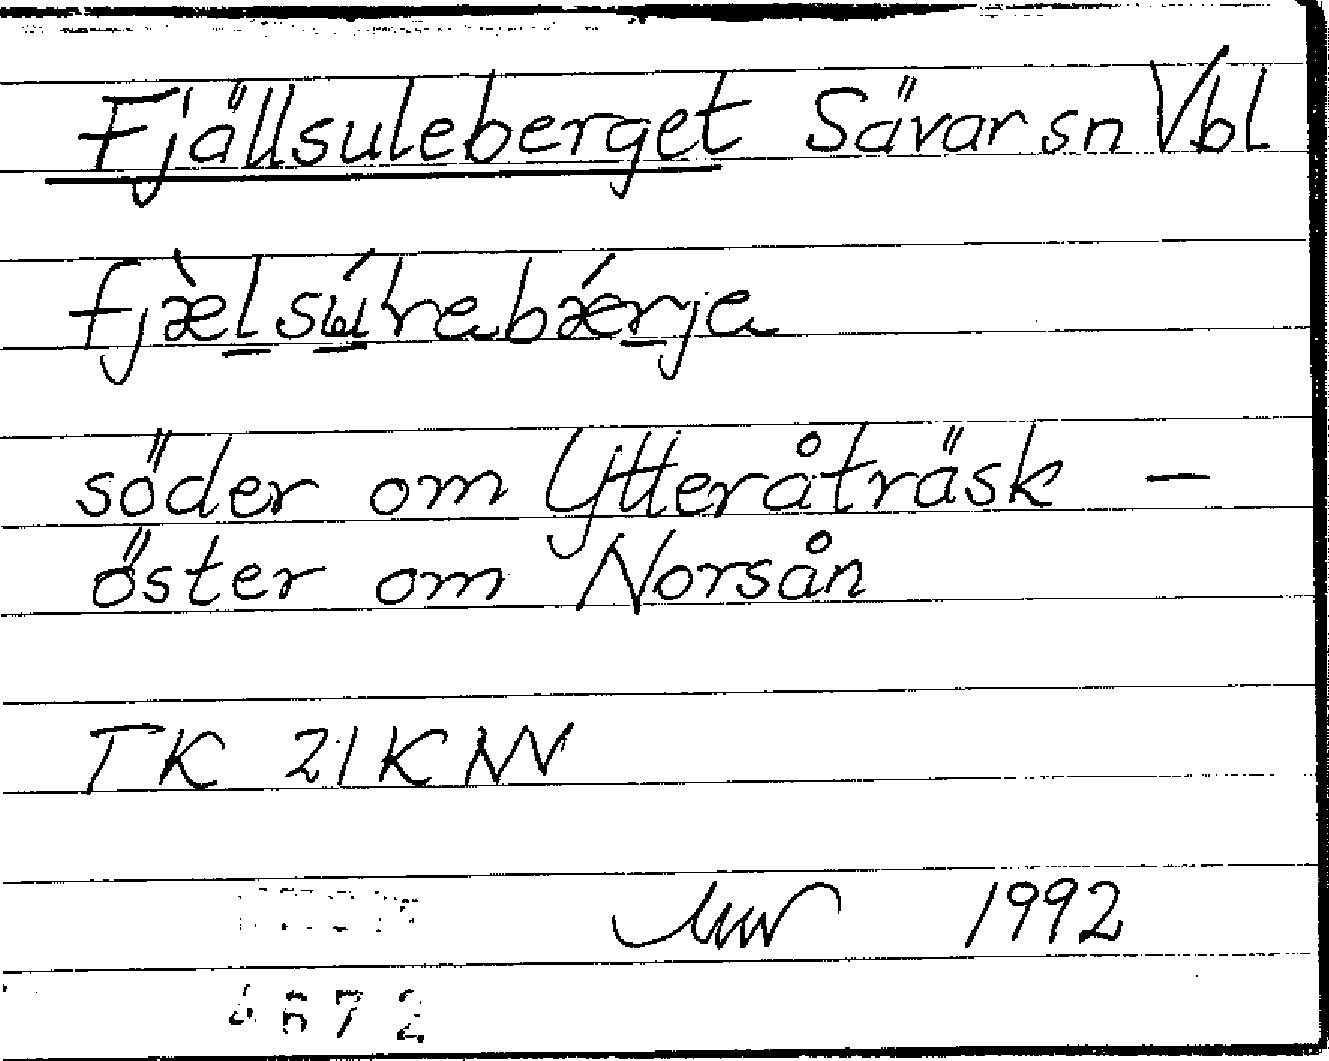 Fjällsuleberget Sävar sn Vbl
fjæ̀lsʉ́lrebǽrje
söder om Ytteråträsk –
öster om Norsån
TK 21K NV
1992